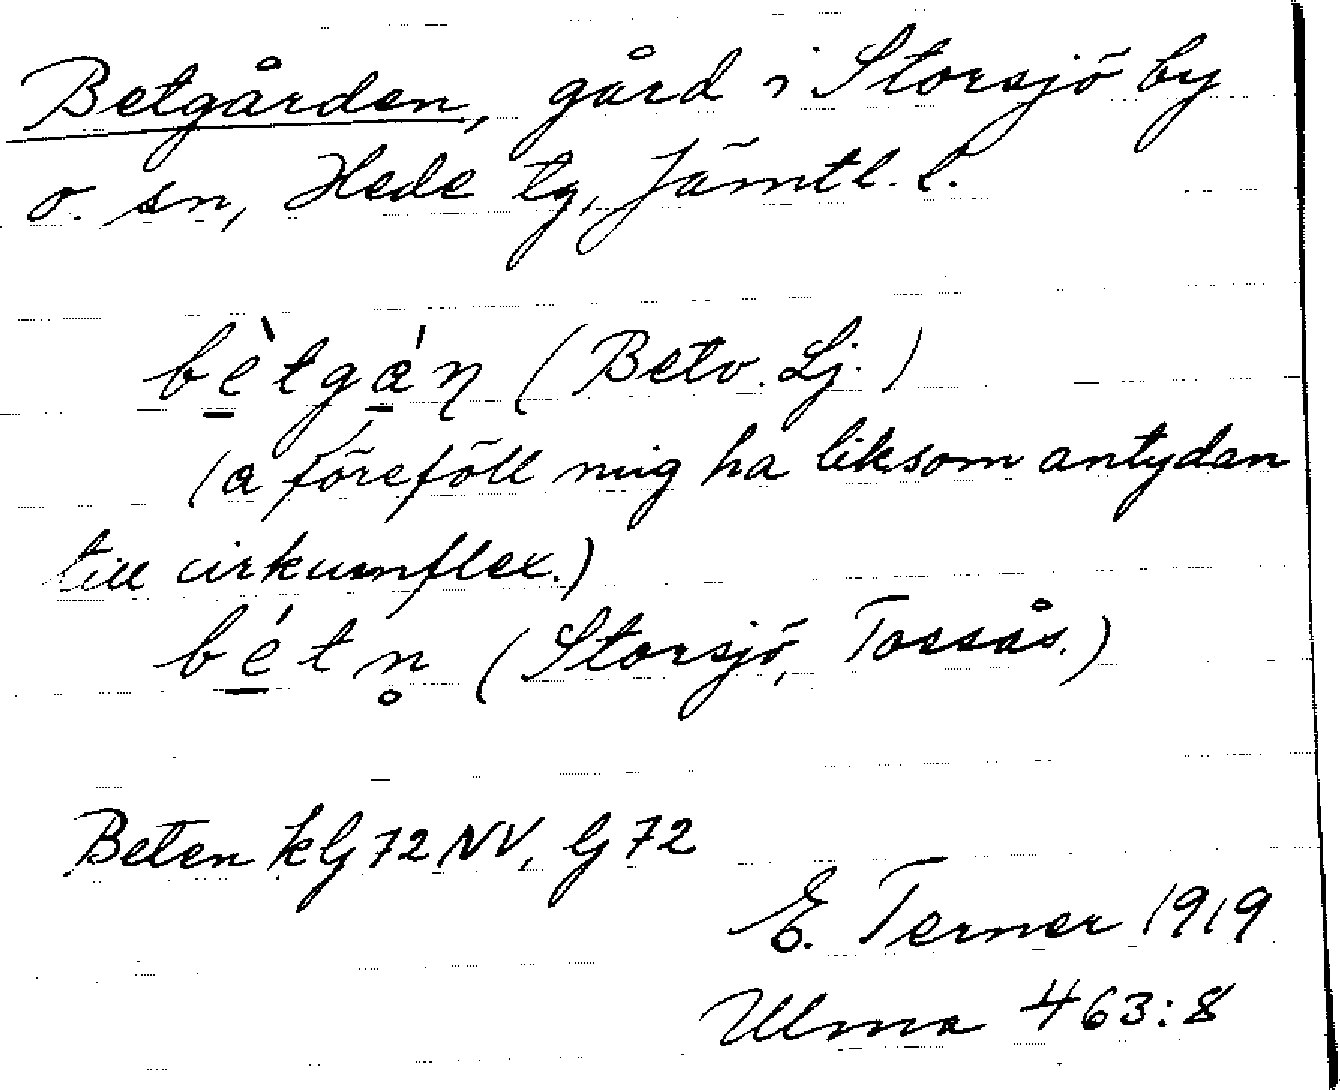 Betgården, gård i Storsjö by
o. sn, Hede tg, Jämtl. l.
bètgán (Betv. Lj.)
(a föreföll mig ha liksom antydan
till cirkumflex.)
bétn̥ (Storsjö, Tossås.)
Beten klj 72 NV, lj 72
E. Terner 1919
Ulma 463:8